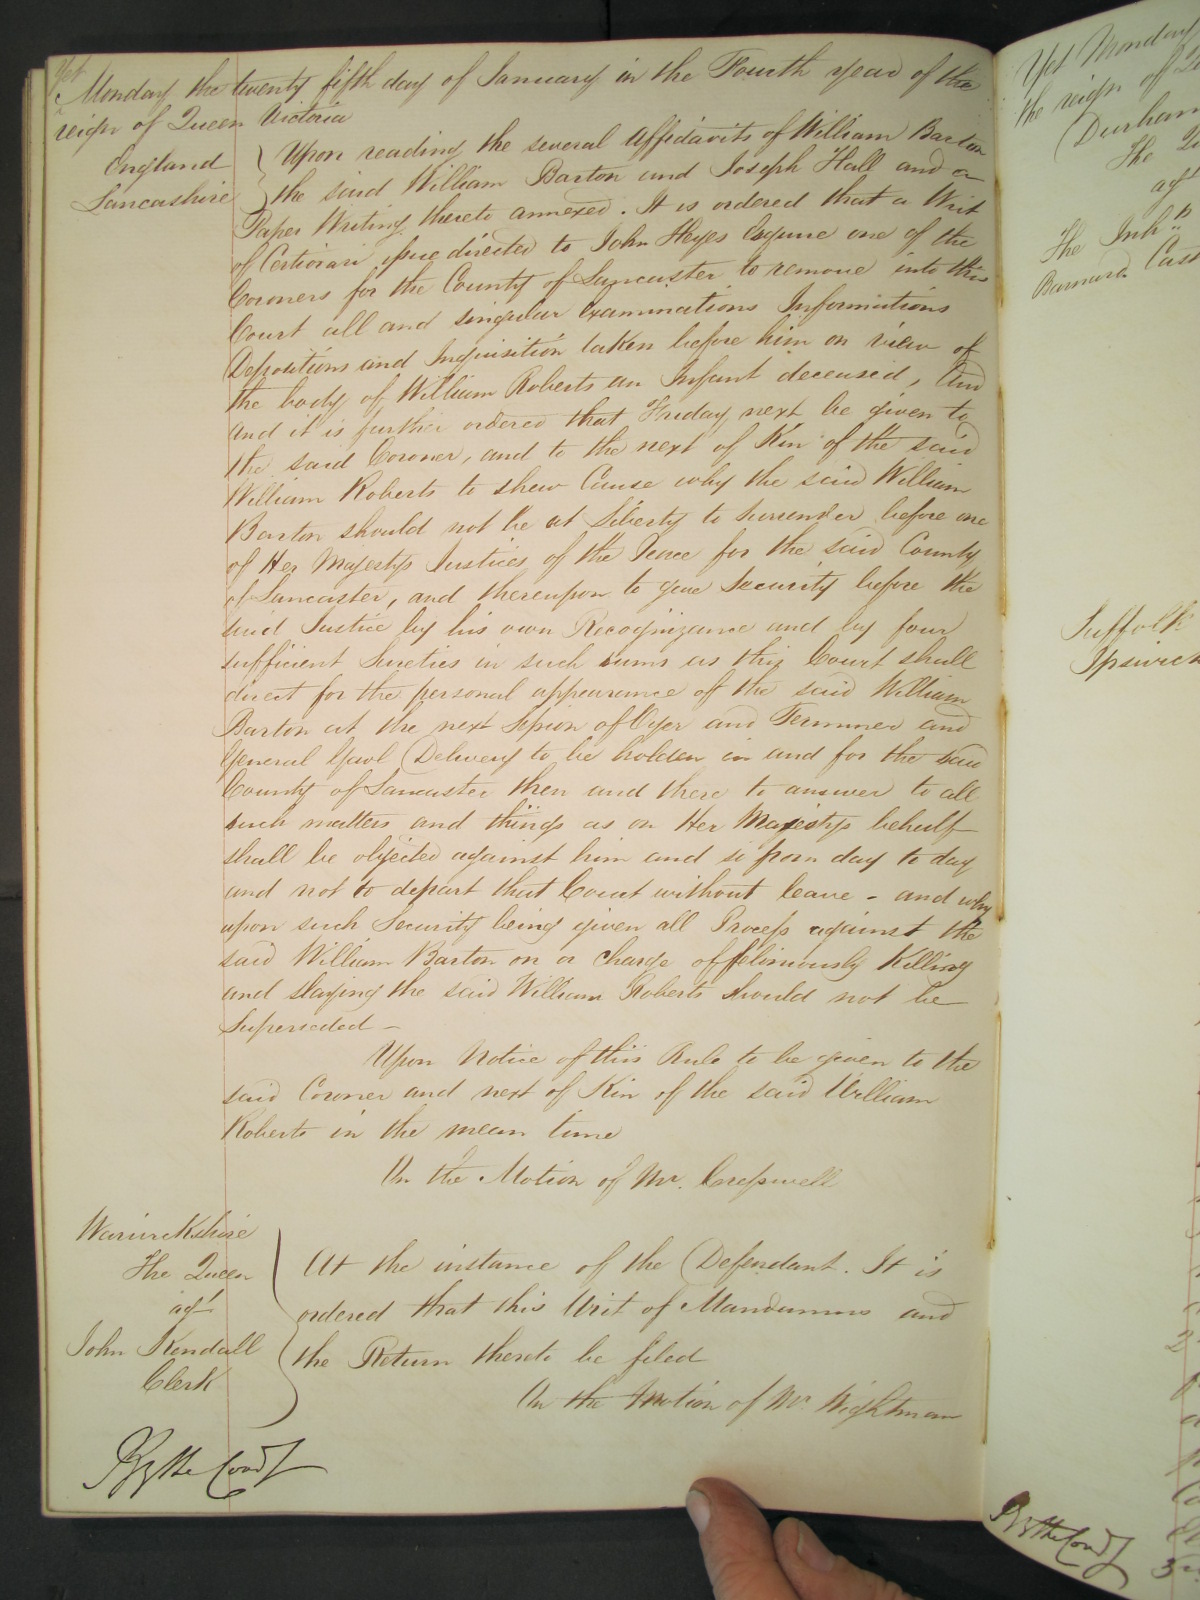 Yet
Monday the twenty fifth day of January in the Fourth year of the
reign of Queen Victoria
England
Lancashire
Upon reading the several Affidavits of William Barton
the said William Barton and Joseph Hall and a
Paper Writing thereto annexed. It is ordered that a Writ
of Certiorari issue directed to John Heyes Esquire one of the
Coroners for the County of Lancaster to remove into this
Court all and singular Examinations Informations
Depositions and Inquisition taken before him on view of
the body of William Roberts an Infant deceased, And
and it is further ordered that Friday next be given to
the said Coroner, and to the next of Kin of the said
William Roberts to shew Cause why the said William
Barton should not be at Liberty to surrender before one
of Her Majestys Justices of the Peace for the said County
of Lancaster, and thereupon to give Security before the
said Justice by his own Recognizance and by four
sufficient Sureties in such sums as this Court shall
direct for the personal appearance of the said William
Barton at the next Session of Oyer and Terminer and
General Gaol Delivery to be holden in and for the said
County of Lancaster then and there to answer to all
such matters and things as on Her Majestys behalf
shall be objected against him and so from day to day
and not to depart that Court without leave - and why
upon such Security being given all Process against the
said William Barton on a Charge of feloniously Killing
and Slaying the said William Roberts should not be
Superseded -
Upon Notice of this Rule to be given to the
said Coroner and next of Kin of the said William
Roberts in the mean time
On the Motion of Mr. Cresswell
Warwickshire
The Queen
agt
John Kendall
Clerk
At the instance of the Defendant. It is
ordered that this Writ of Mandamus and
the Return thereto be filed
On the Motion of Mr. Wightman
By the Court
Yet Monday
the reign of
Durham
The
agt
The Inhts
Barnard Cast
Suffolk
Ipswich
By the Court